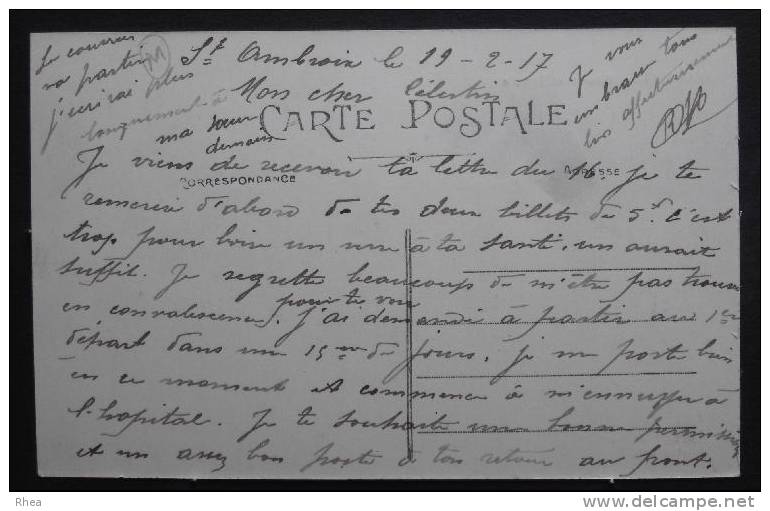 St Ambroix le 19-2-17
Mon cher Célestin
CARTE POSTALE
CORRESPONDANCE
ADRESSE
Je viens de recevoir ta lettre du 16. je te
remercie d'abord de tes deux billets de 5f. c'est
trop pour boire un verre à ta santé, un aurait
suffit. Je regrette beaucoup de m'être pas trouvé
en convalescence pour te voir. j'ai demandé à partir au 1er
départ dans une 15ne de jours, je me porte bien
en ce moment et commence à m'ennuyer à
l'hopital. Je te souhaite une bonne permission
et un assez bon poste à ton retour au front.
Le courrier
va partir
j'écrirai plus
longuement à
ma sœur
demain
Je vous
embrasse tous
bien affectueusement
Rhea
©delcampe.net